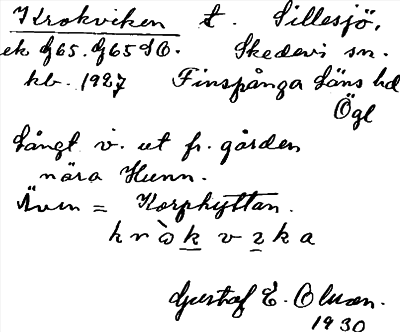 Krokviken t. Sillesjö,
ek G65. G65 SO. Skedevi sn.
kb. 1927 Finspånga läns hd
Ögl
Långt v. ut fr. gården
nära Hunn.
Även = Korphyttan.
krò̤k v ɩ k a
Gustaf E. Olsson.
1930